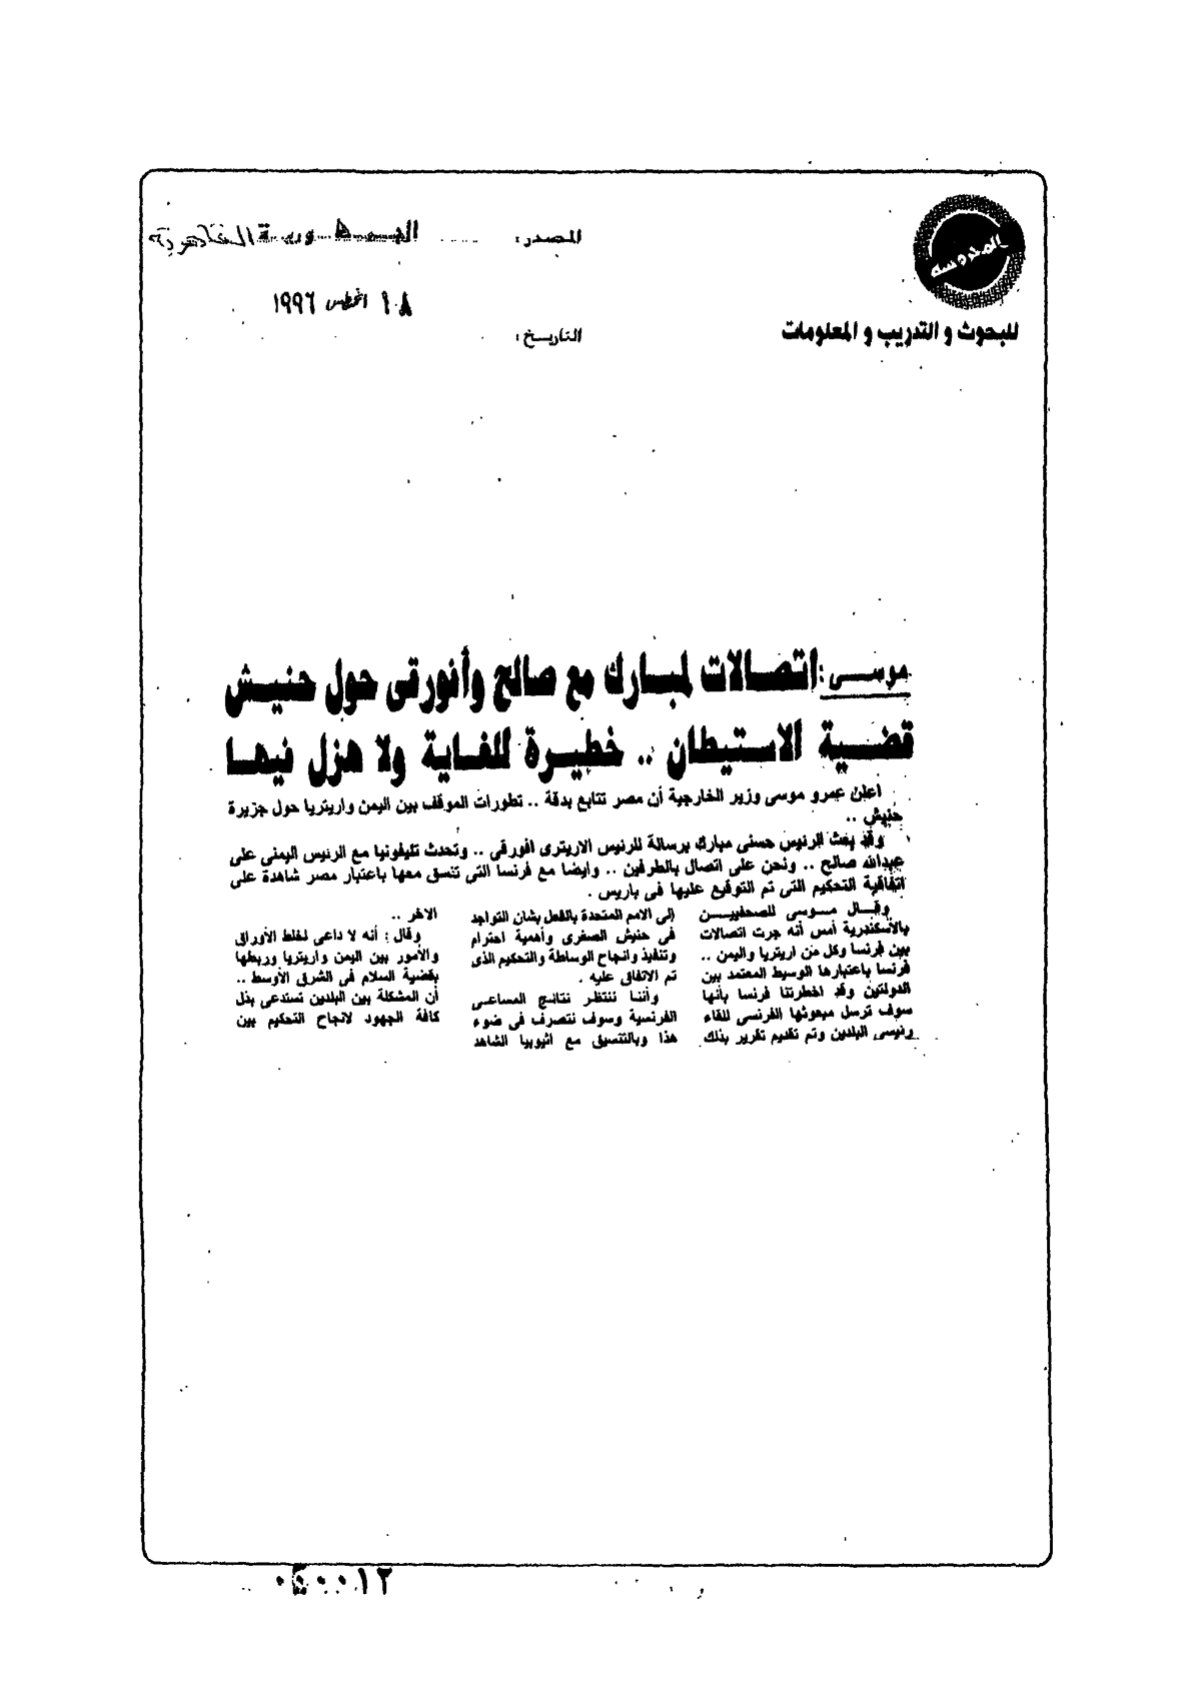 المحروسه
للبحوث و التدريب و المعلومات
المصدر: الجمهورية القاهرية
١٨ اغسطس ١٩٩٦
التاريخ:
موسى: اتصالات لمبارك مع صالح وأفورقى حول حنيش
قضية الاستيطان .. خطيرة للغاية ولا هزل فيها
اعلن عمرو موسى وزير الخارجية أن مصر تتابع بدقة .. تطورات الموقف بين اليمن واريتريا حول جزيرة
حنيش ..
وقد بعث الرئيس حسنى مبارك برسالة للرئيس الاريترى افورقى .. وتحدث تليفونيا مع الرئيس اليمنى على
عبدالله صالح .. ونحن على اتصال بالطرفين .. وايضا مع فرنسا التى تنسق معها باعتبار مصر شاهدة على
اتفاقية التحكيم التى تم التوقيع عليها فى باريس .
وقال موسى للصحفيين
بالاسكندرية أمس أنه جرت اتصالات
بين فرنسا وكل من اريتريا واليمن ..
فرنسا باعتبارها الوسيط المعتمد بين
الدولتين وقد اخطرتنا فرنسا بأنها
سوف ترسل مبعوثها الفرنسى للقاء
رئيسى البلدين وتم تقديم تقرير بذلك
إلى الامم المتحدة بالفعل بشان التواجد
فى حنيش الصغرى وأهمية احترام
وتنفيذ وانجاح الوساطة والتحكيم الذى
تم الاتفاق عليه .
وأننا ننتظر نتائج المساعى
الفرنسية وسوف نتصرف فى ضوء
هذا وبالتنسيق مع اثيوبيا الشاهد
الاخر ..
وقال : أنه لا داعى لخلط الأوراق
والأمور بين اليمن واريتريا وربطها
بقضية السلام فى الشرق الأوسط ..
أن المشكلة بين البلدين تستدعى بذل
كافة الجهود لانجاح التحكيم بين